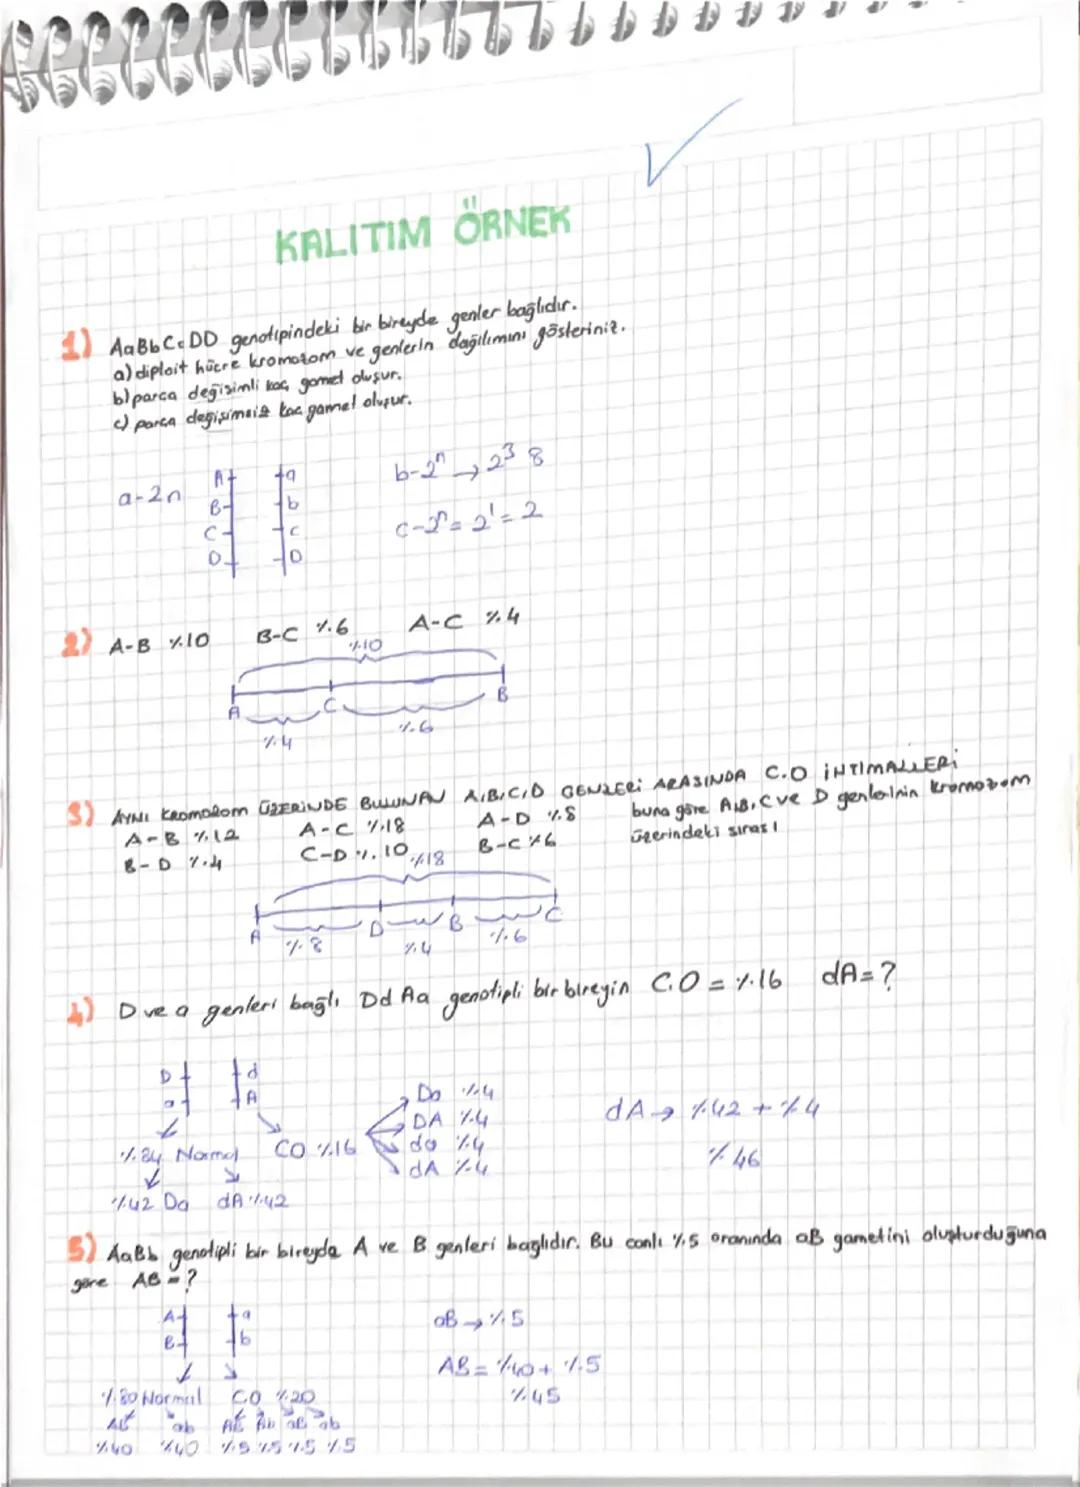 KALITIM ÖRNEK
1) AaBbCcDD genotipindeki bir bireyde genler bağlıdır.
a) diploit hücre kromozom ve genlerin dağılımını gösteriniz.
b) parça değişimli kaç gamet oluşur.
c) parça değişimsiz kaç gamet oluşur.
a-2n
A a
B b
C c
D D
b-2ⁿ → 2³ 8
c-2ⁿ = 2¹ = 2
2) A-B %10 B-C %6 A-C %4
%10
A C B
%4 %6
3) AYNI KROMOZOM ÜZERİNDE BULUNAN A,B,C,D GENLERİ ARASINDA C.O İHTİMALLERİ
A-B %12 A-C %18 A-D %8 buna göre A,B,C ve D genlerinin kromozom
B-D %4 C-D %10 B-C %6 üzerindeki sırası
%18
A D B C
%8 %4 %6
4) D ve a genleri bağlı DdAa genotipli bir bireyin C.O = %16 dA=?
D d
a A
%84 Normal CO %16
%42 Da dA %42
Da %4
DA %4
da %4
dA %4
dA → %42 + %4
%46
5) AaBb genotipli bir bireyde A ve B genleri bağlıdır. Bu canlı %5 oranında aB gametini oluşturduğuna
göre AB = ?
A a
B b
%80 Normal CO %20
AB ab AB Ab aB ab
%40 %40 %5 %5 %5 %5
aB → %5
AB = %40 + %5
%45